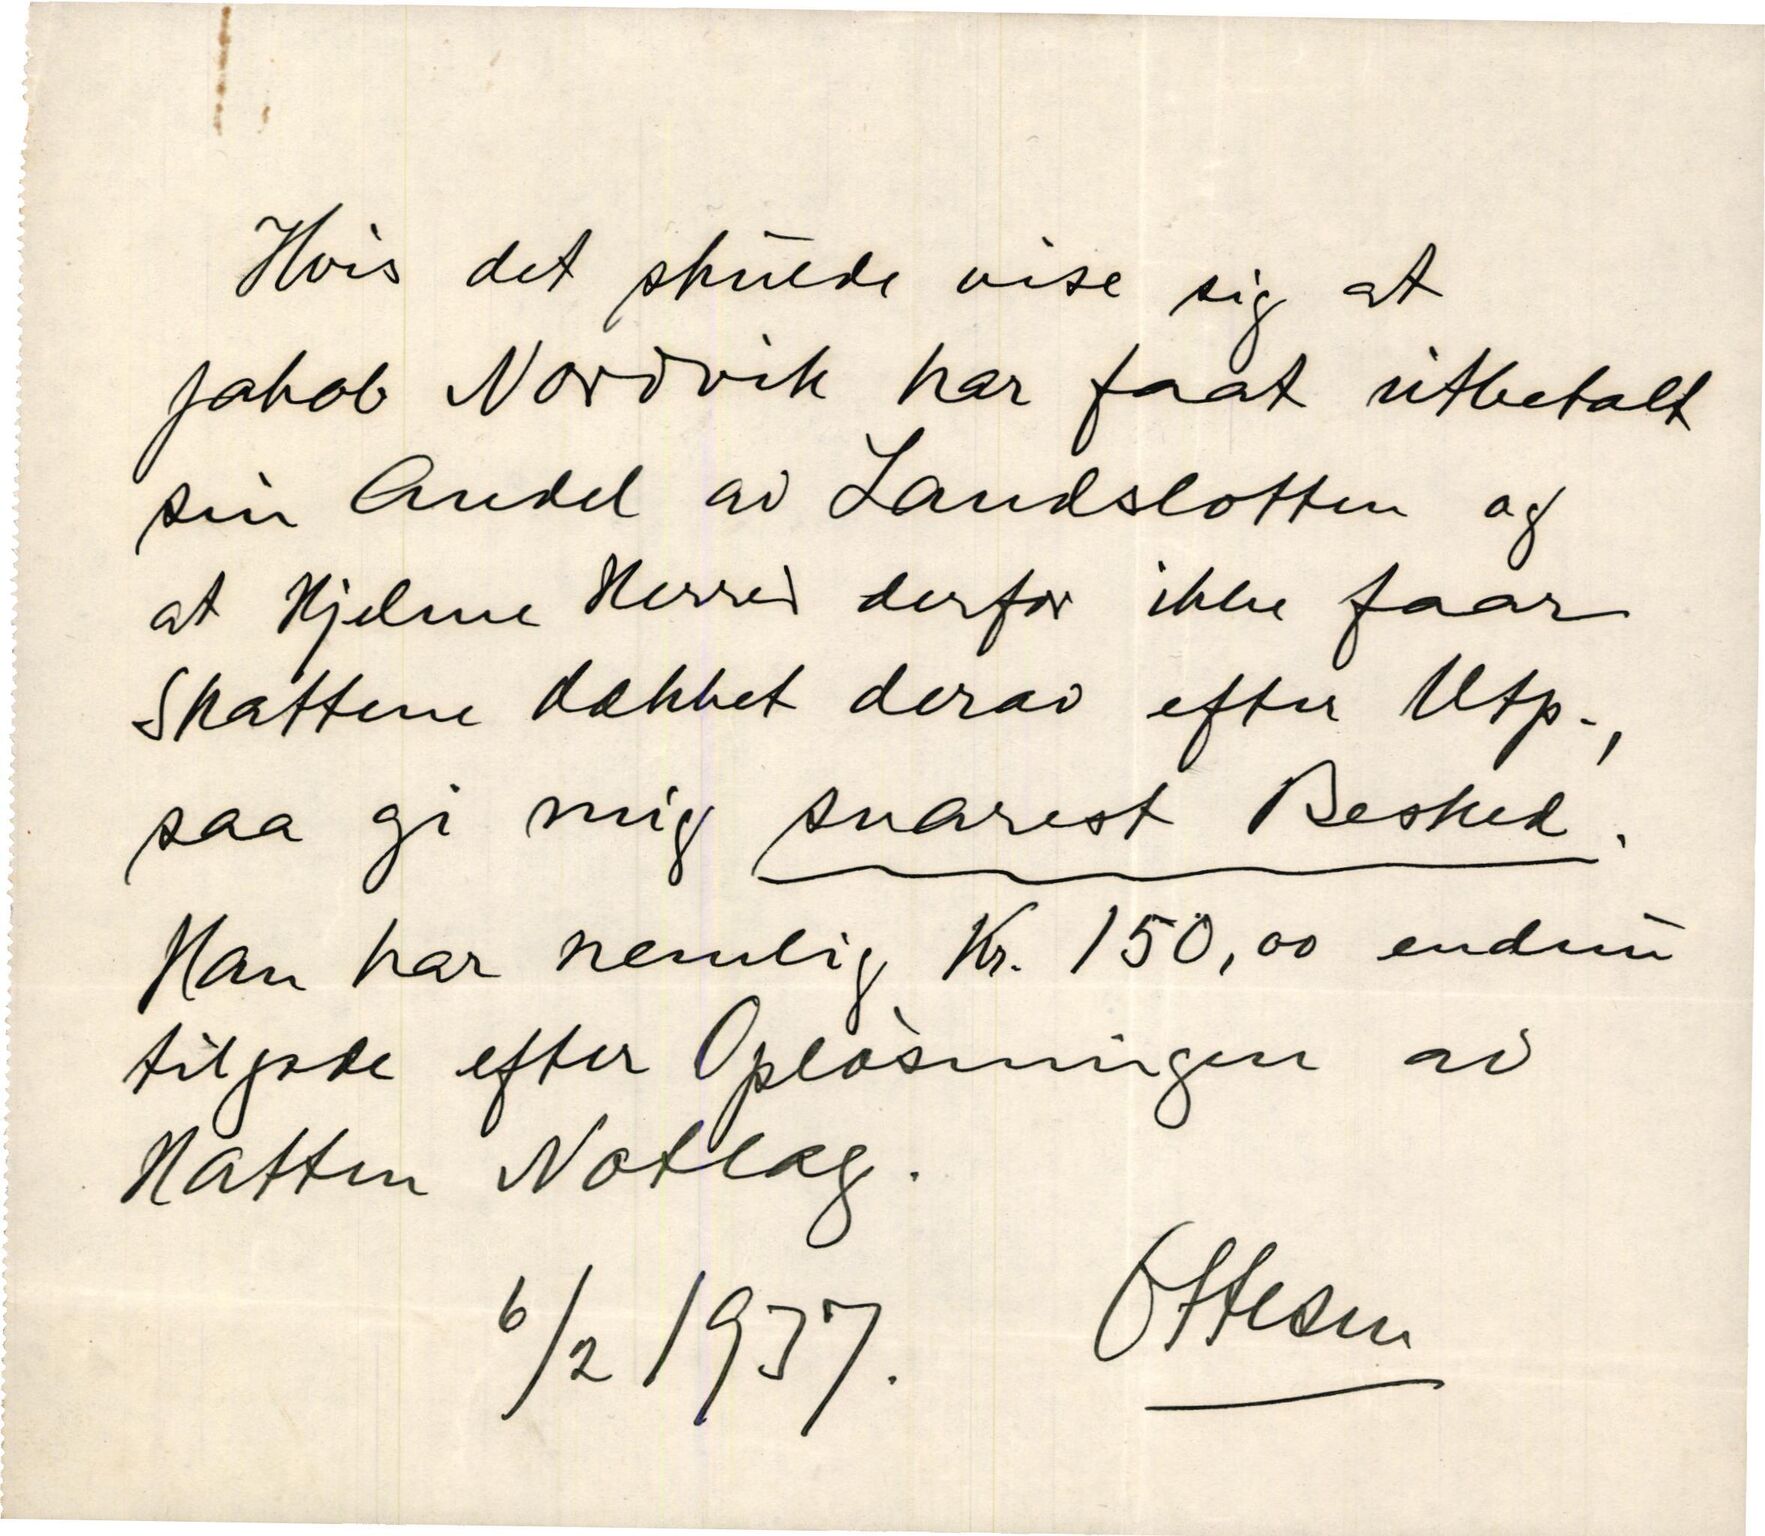 Hvis det skulde vise sig at
Jakob Nordvik har faat utbetalt
sin Andel av Landslotten og
at Hjelme Herred derfor ikke faar
Skattene dækket derav efter Utp.,
saa gi mig snarest Besked.
Han har nemlig Kr. 150,00 endnu
tilgode efter Opløsningen av
Hatten Notlag.
6/2 1937. Ottesen